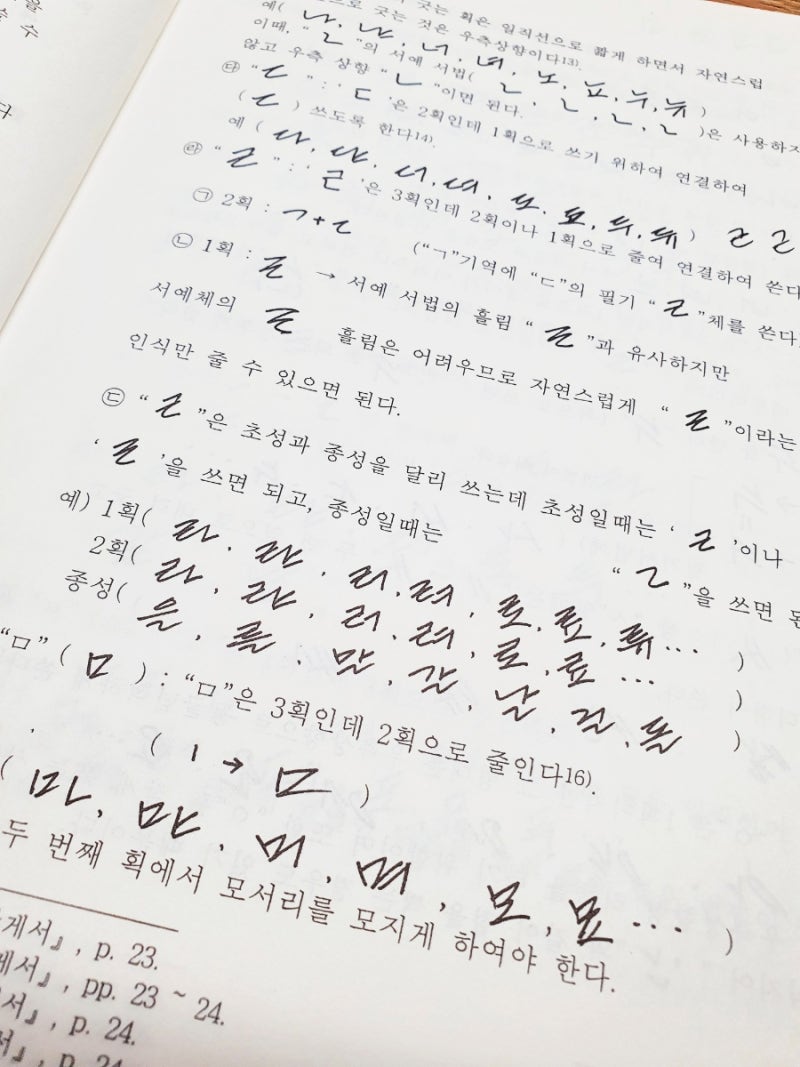 을
수
다
긋는 획은 일직선으로 짧게 하면서 자연스럽
으로 긋는 것은 우측상향이다13).
예( 나, 냐, 너, 녀, 노, 뇨, 누, 뉴 )
이때, “ㄴ”의 서예 서법( ㄴ, ㄴ, ㄴ, ㄴ )은 사용하지
않고 우측 상향 “ㄴ”이면 된다.
㉰ “ㄷ” : ‘ㄷ’은 2획인데 1획으로 쓰기 위하여 연결하여
(ㄷ) 쓰도록 한다14).
예 ( 다, 댜, 더, 뎌, 도, 됴, 두, 듀 )
㉱ “ㄹ” : ‘ㄹ’은 3획인데 2획이나 1획으로 줄여 연결하여 쓴다
㉠ 2획 : ㄱ+ㄷ ㄹ ㄹ
(“ㄱ”기역에 “ㄷ”의 필기 “ㄹ”체를 쓴다
㉡ 1획 : ㄹ → 서예 서법의 흘림 “ㄹ”과 유사하지만
서예체의 ㄹ 흘림은 어려우므로 자연스럽게 “ㄹ”이라는
인식만 줄 수 있으면 된다.
㉢ “ㄹ”은 초성과 종성을 달리 쓰는데 초성일때는 ‘ㄹ’이나
‘ㄹ’을 쓰면 되고, 종성일때는 “ㄹ”을 쓰면 된
예) 1획( 라, 랴, 러, 려, 로, 료, 류 … )
2획( 라, 랴, 러, 려, 로, 료 … )
종성( 을, 를, 말, 갈, 날, 걸, 놀 )
“ㅁ” ( ㅁ ) : “ㅁ”은 3획인데 2획으로 줄인다16).
( ㅣ → ㅁ )
( 마, 먀, 머, 며, 모, 묘 … )
두 번째 획에서 모서리를 모지게 하여야 한다.
게서』, p. 23.
게서』, pp. 23 ~ 24.
서』, p. 24.
서』, p. 24